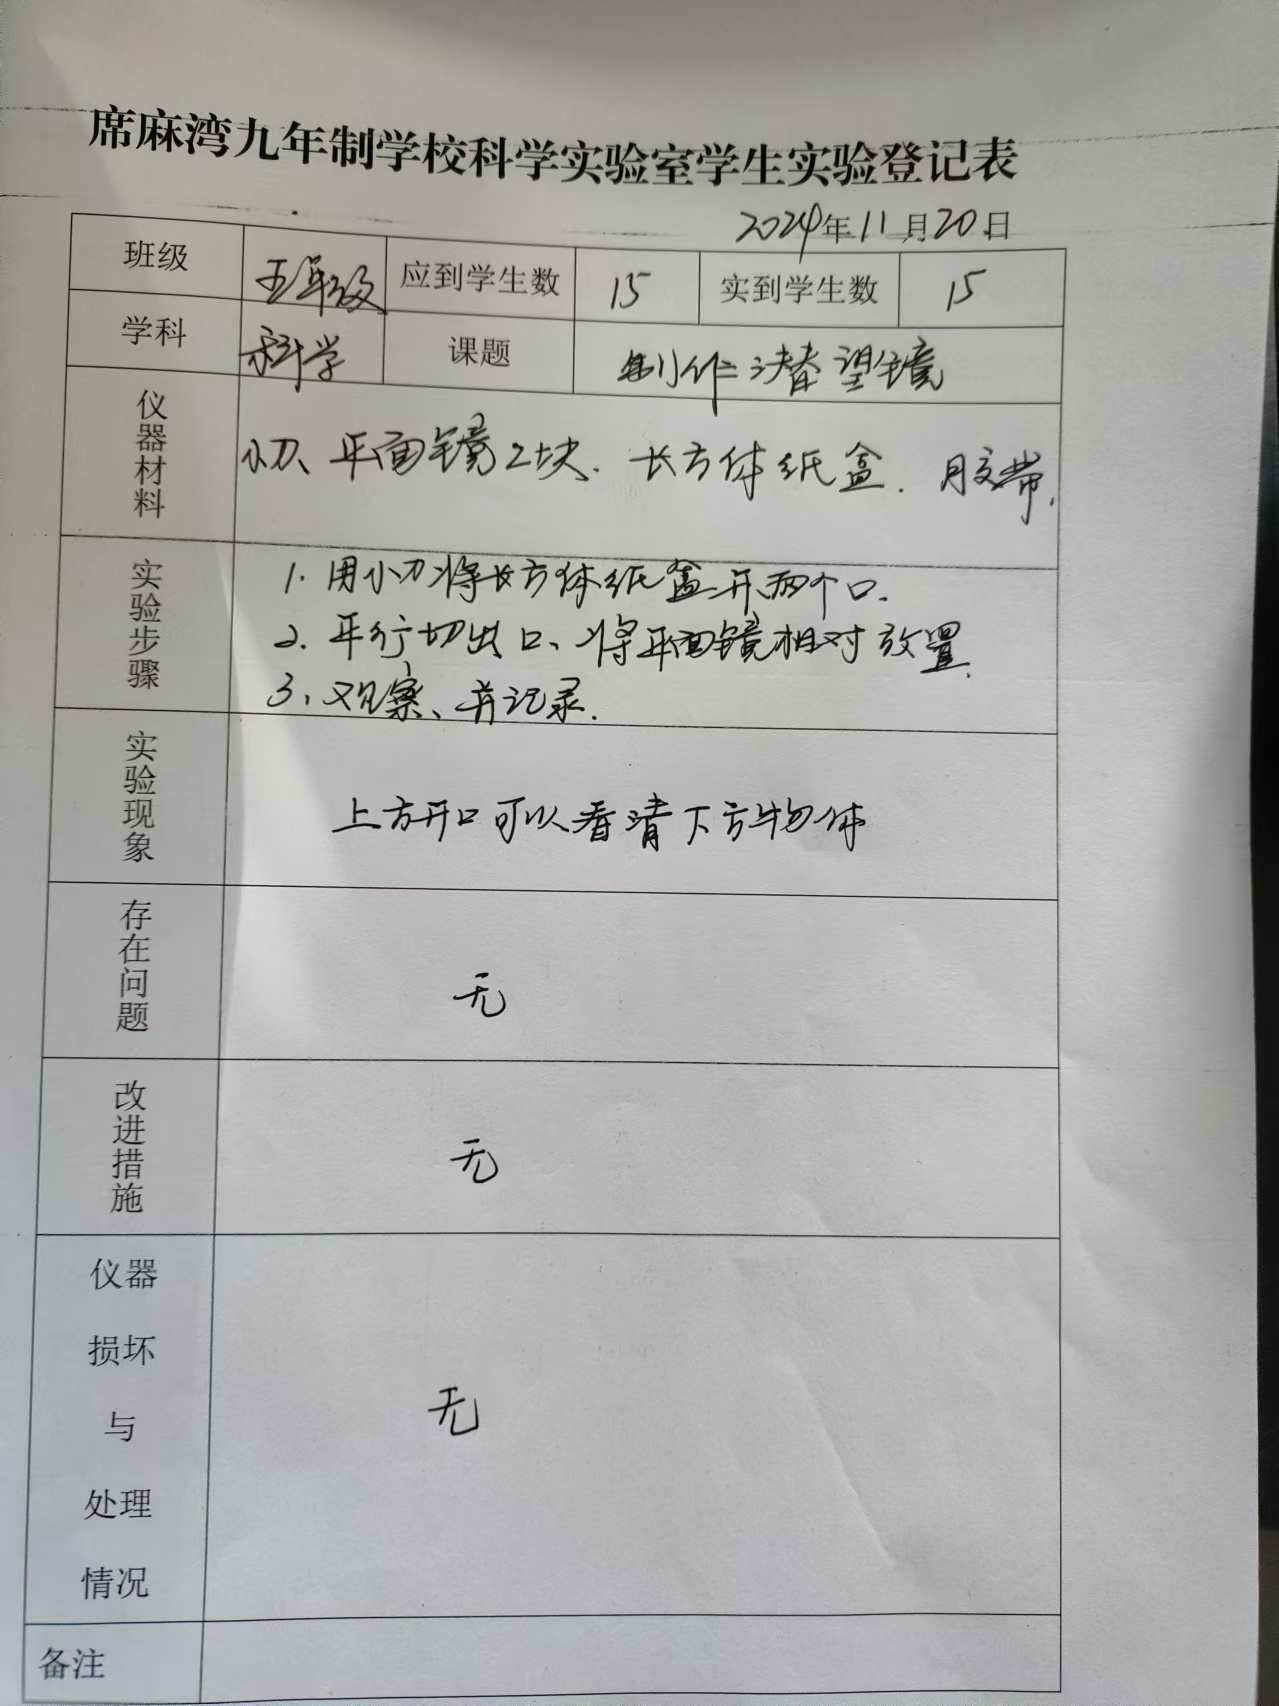 席麻湾九年制学校科学实验室学生实验登记表
2024年11月20日
班级 五年级 应到学生数 15 实到学生数 15
学科 科学 课题 制作潜望镜
仪器材料 小刀、平面镜2块、长方体纸盒、胶带.
实验步骤 1. 用小刀将长方体纸盒开两个口.
2. 平行切出口、将平面镜相对放置.
3、观察、并记录.
实验现象 上方开口可以看清下方物体
存在问题 无
改进措施 无
仪器
损坏
与 无
处理
情况
备注